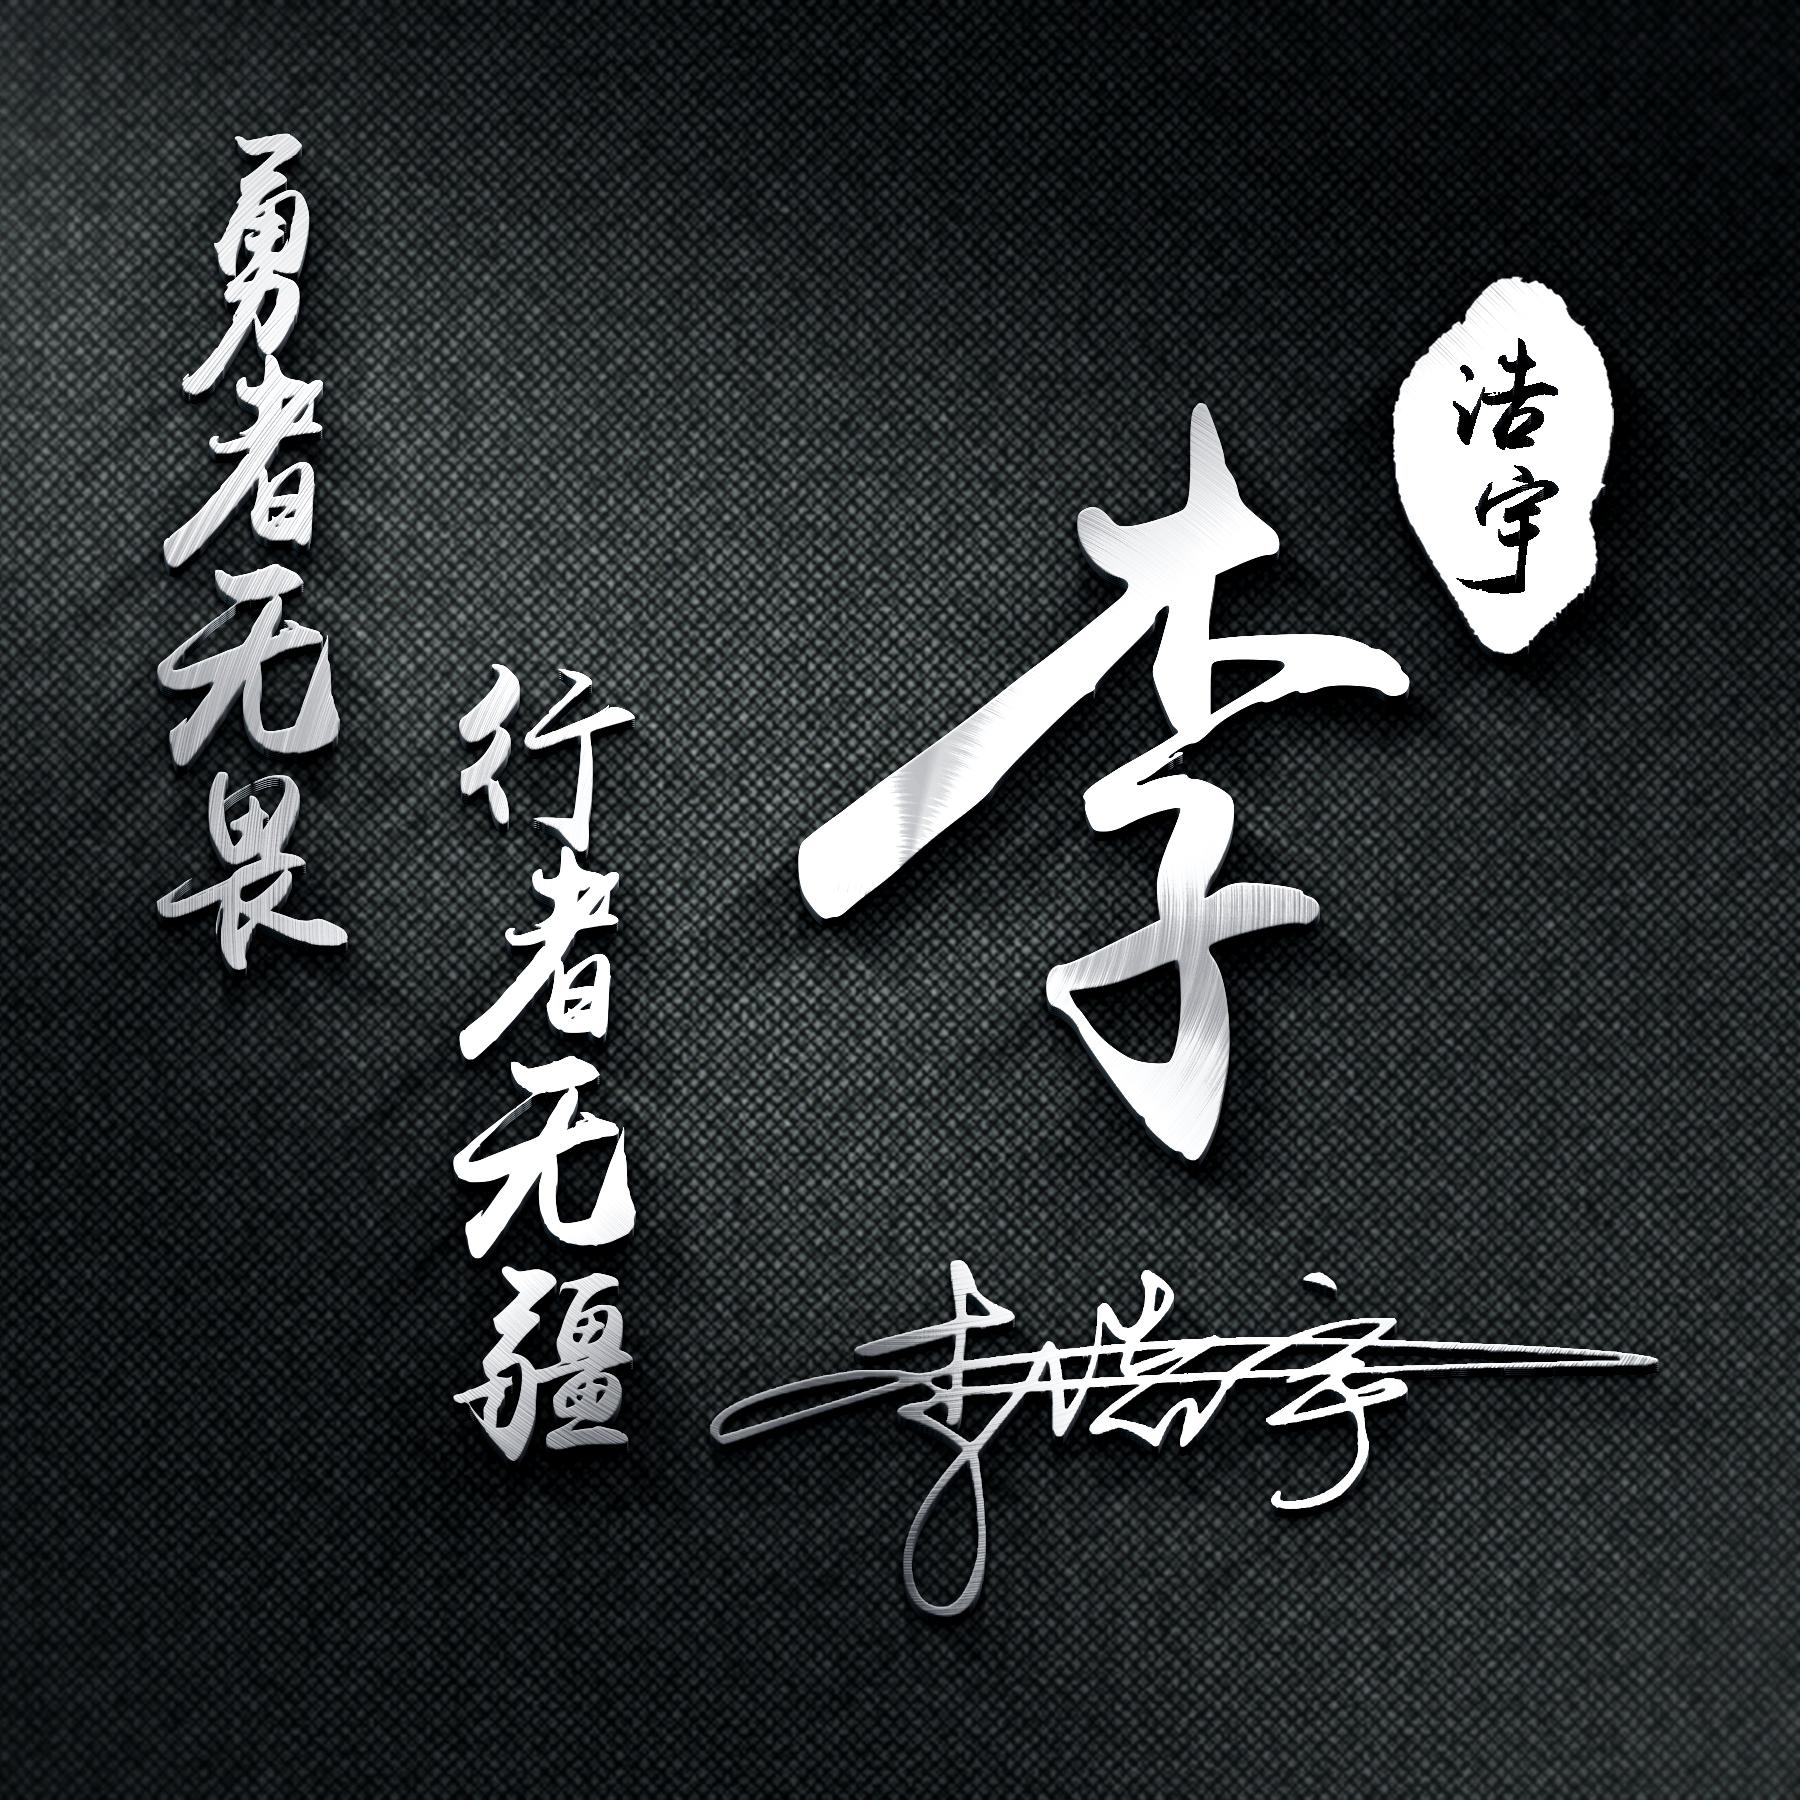 勇者无畏
行者无疆
李
浩宇
李浩宇